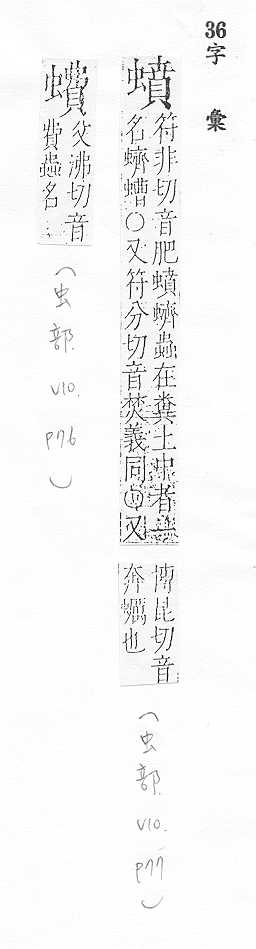 36
字彙
蟦
符非切音肥蟦蠐蟲在糞土中者一
名蠐螬○又符分切音焚義同○又
博昆切音
奔蠣也
（虫部 V10. P77）
䘝
父沸切音
費蟲名
（虫部 V10. P76）